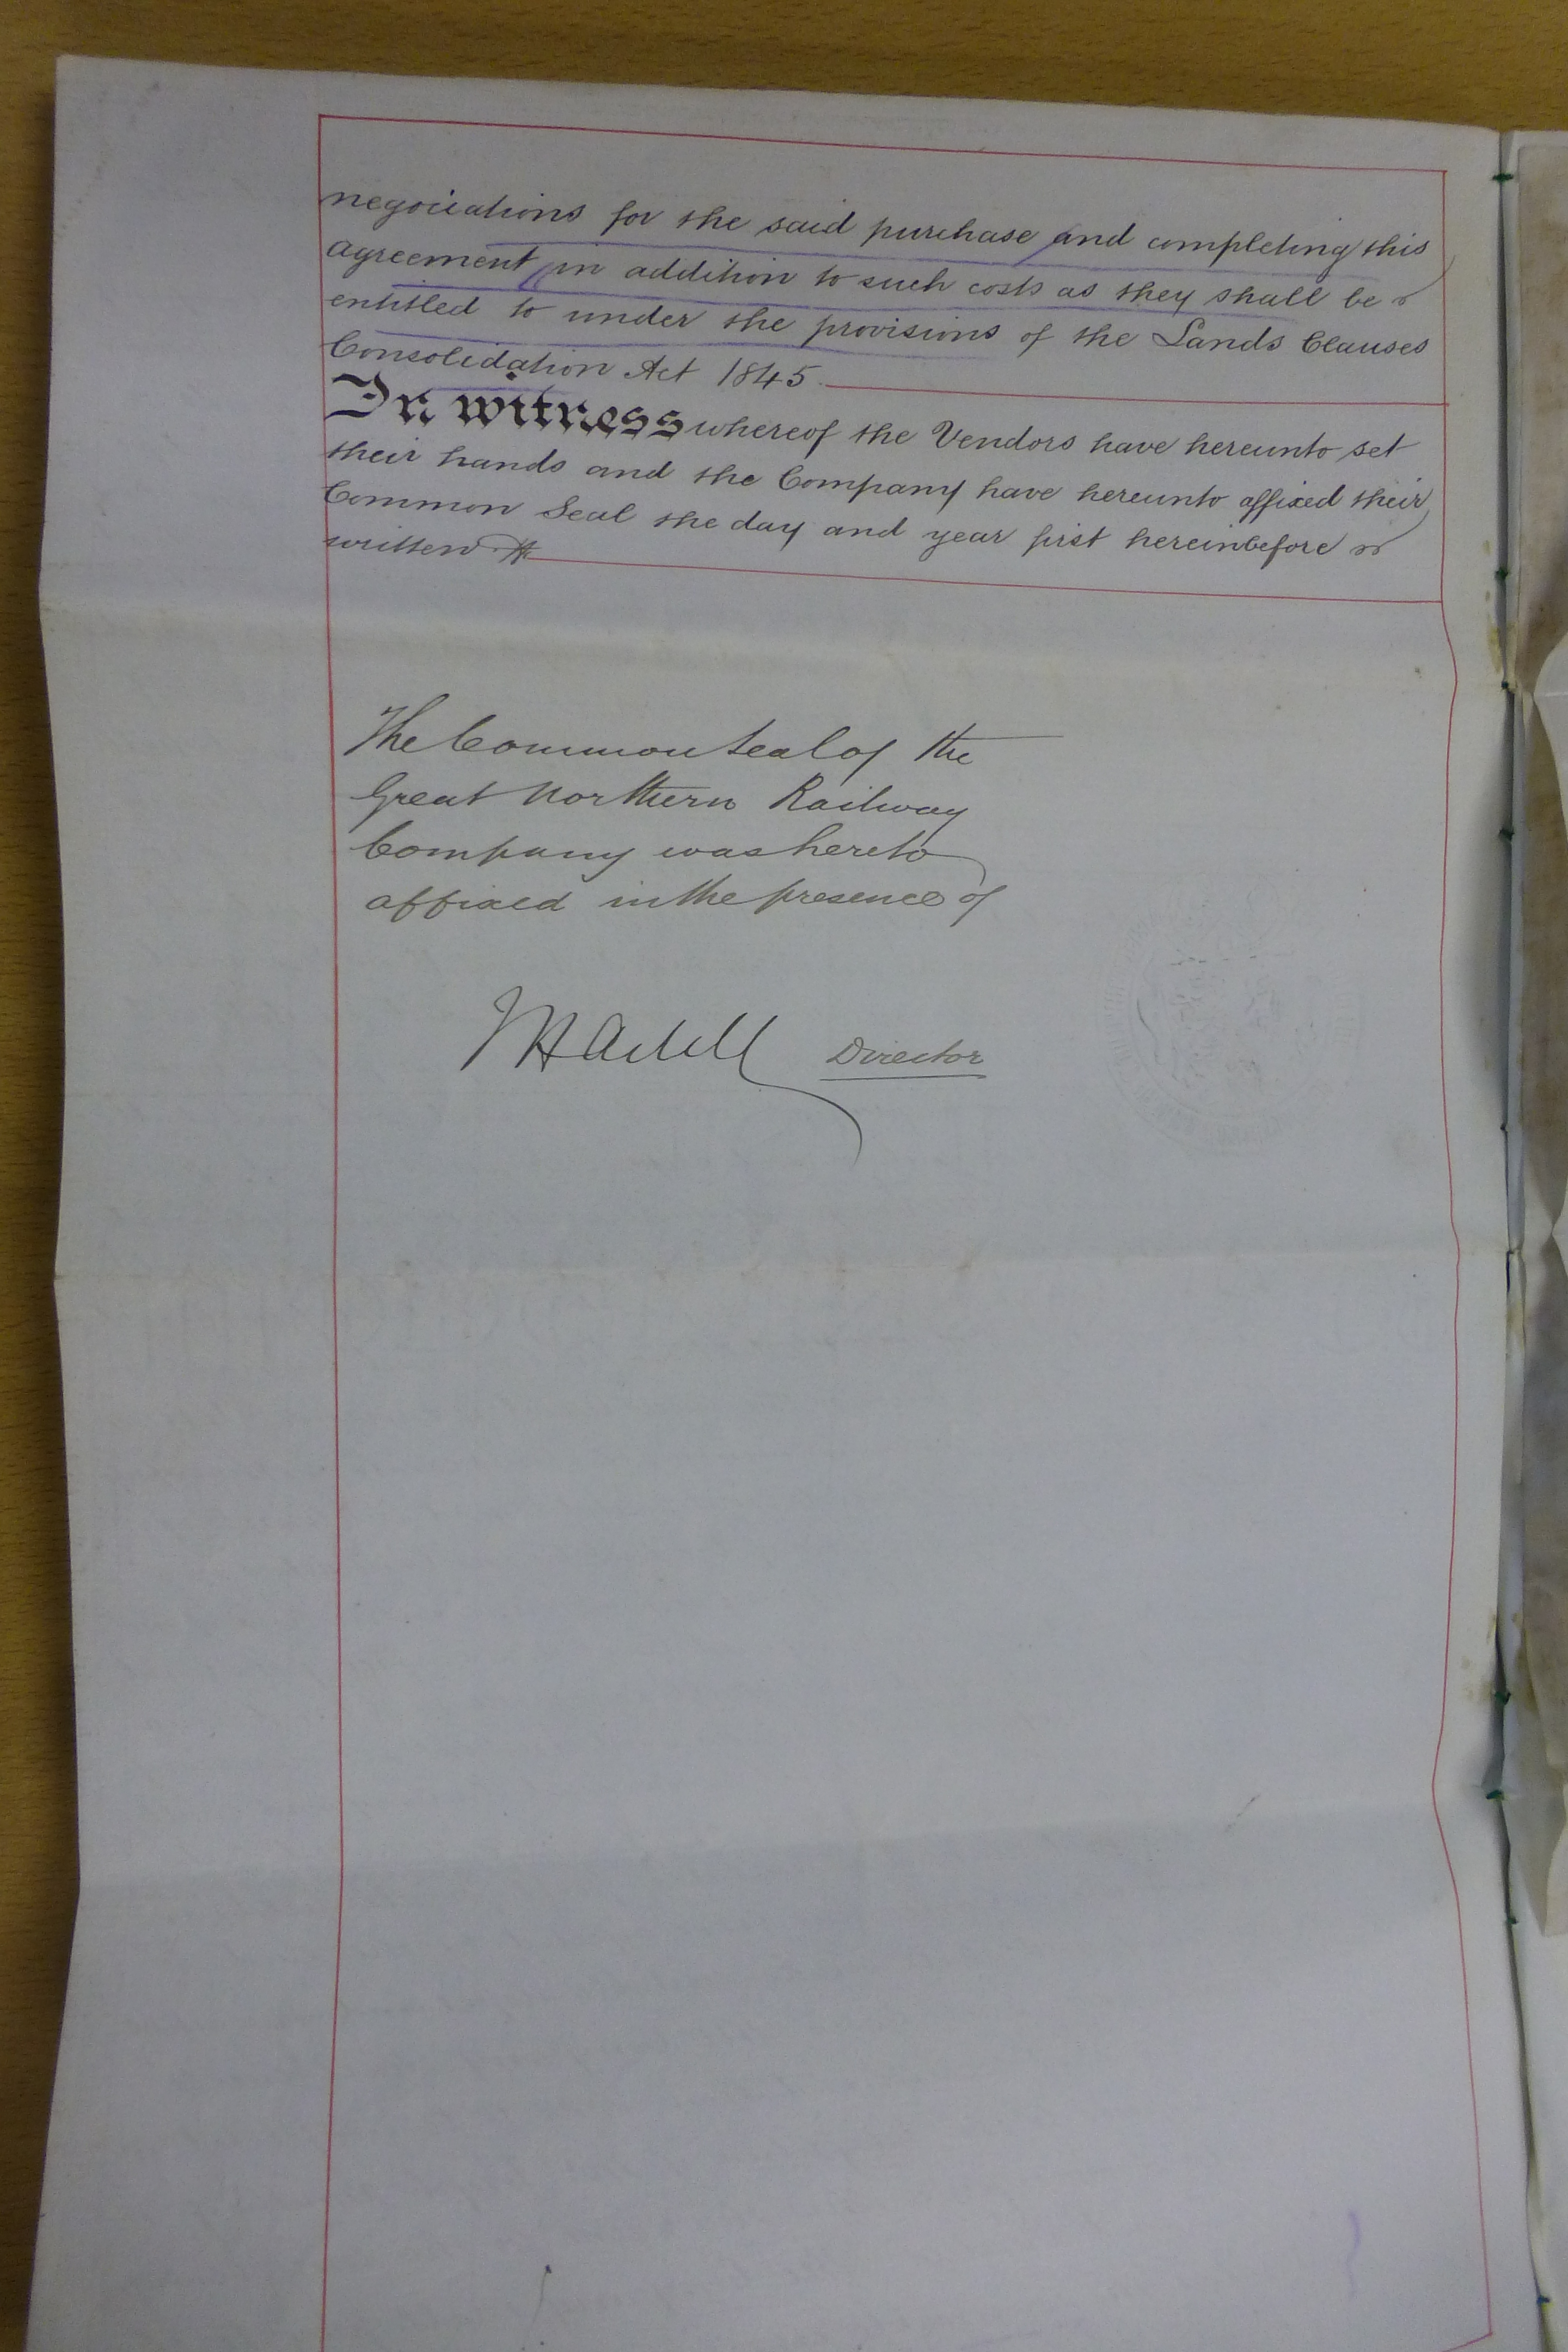 negociations for the said purchase and completing this
agreement in addition to such costs as they shall be
entitled to under the provisions of the Lands Clauses
Consolidation Act 1845.
In witness whereof the Vendors have hereunto set
their hands and the Company have hereunto affixed their
Common Seal the day and year first hereinbefore
written
The Common Seal of the
Great Northern Railway
Company was hereto
affixed in the presence of
Director